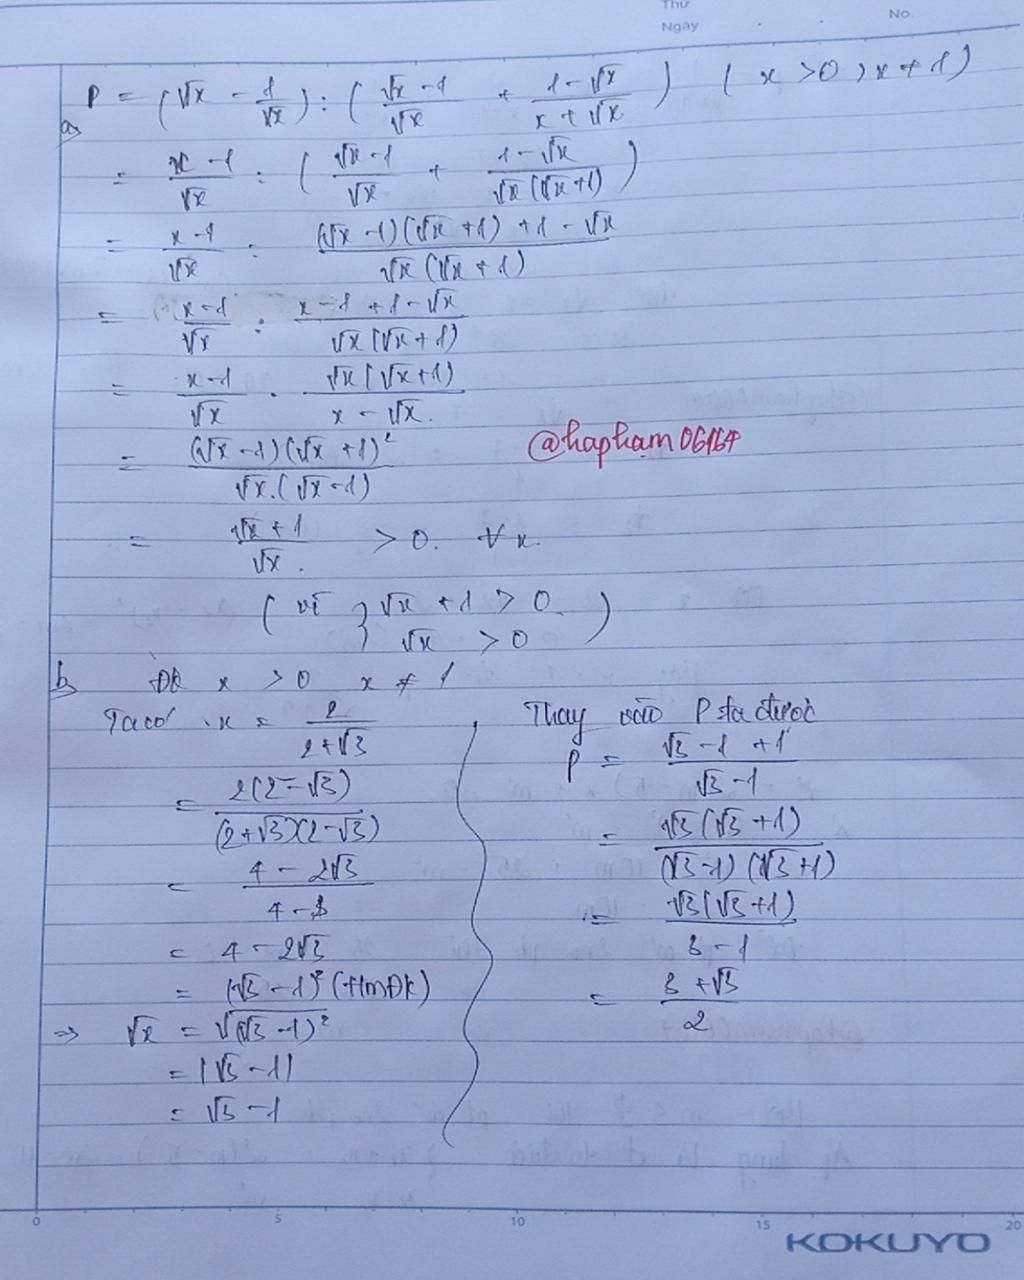 Thứ
Ngày . . No.
a, P = (√x - 1/√x) : ( (√x - 1)/√x + (1 - √x)/(x + √x) ) ( x > 0 , x ≠ 1)
= (x - 1)/√x : ( (√x - 1)/√x + (1 - √x)/(√x (√x + 1)) )
= (x - 1)/√x : ((√x - 1)(√x + 1) + 1 - √x)/(√x (√x + 1))
= (x - 1)/√x : (x - 1 + 1 - √x)/(√x (√x + 1))
= (x - 1)/√x . (√x (√x + 1))/(x - √x).
= ((√x - 1)(√x + 1)²)/(√x.(√x - 1))
@hapham06164
= (√x + 1)/√x . > 0. ∀ x.
( vì } √x + 1 > 0. )
√x > 0
b, ĐK x > 0 x ≠ 1
Ta có x = 2/(2 + √3)
= (2(2 - √3))/((2 + √3)(2 - √3))
= (4 - 2√3)/(4 - 3)
= 4 - 2√3
= (√3 - 1)² (tmĐK)
=> √x = √((√3 - 1)²)
= |√3 - 1|
= √3 - 1
Thay vào P ta được
P = (√3 - 1 + 1)/(√3 - 1)
= (√3 (√3 + 1))/((√3 - 1)(√3 + 1))
= (√3 (√3 + 1))/(3 - 1)
= (3 + √3)/2
0 5 10 15 20
KOKUYO